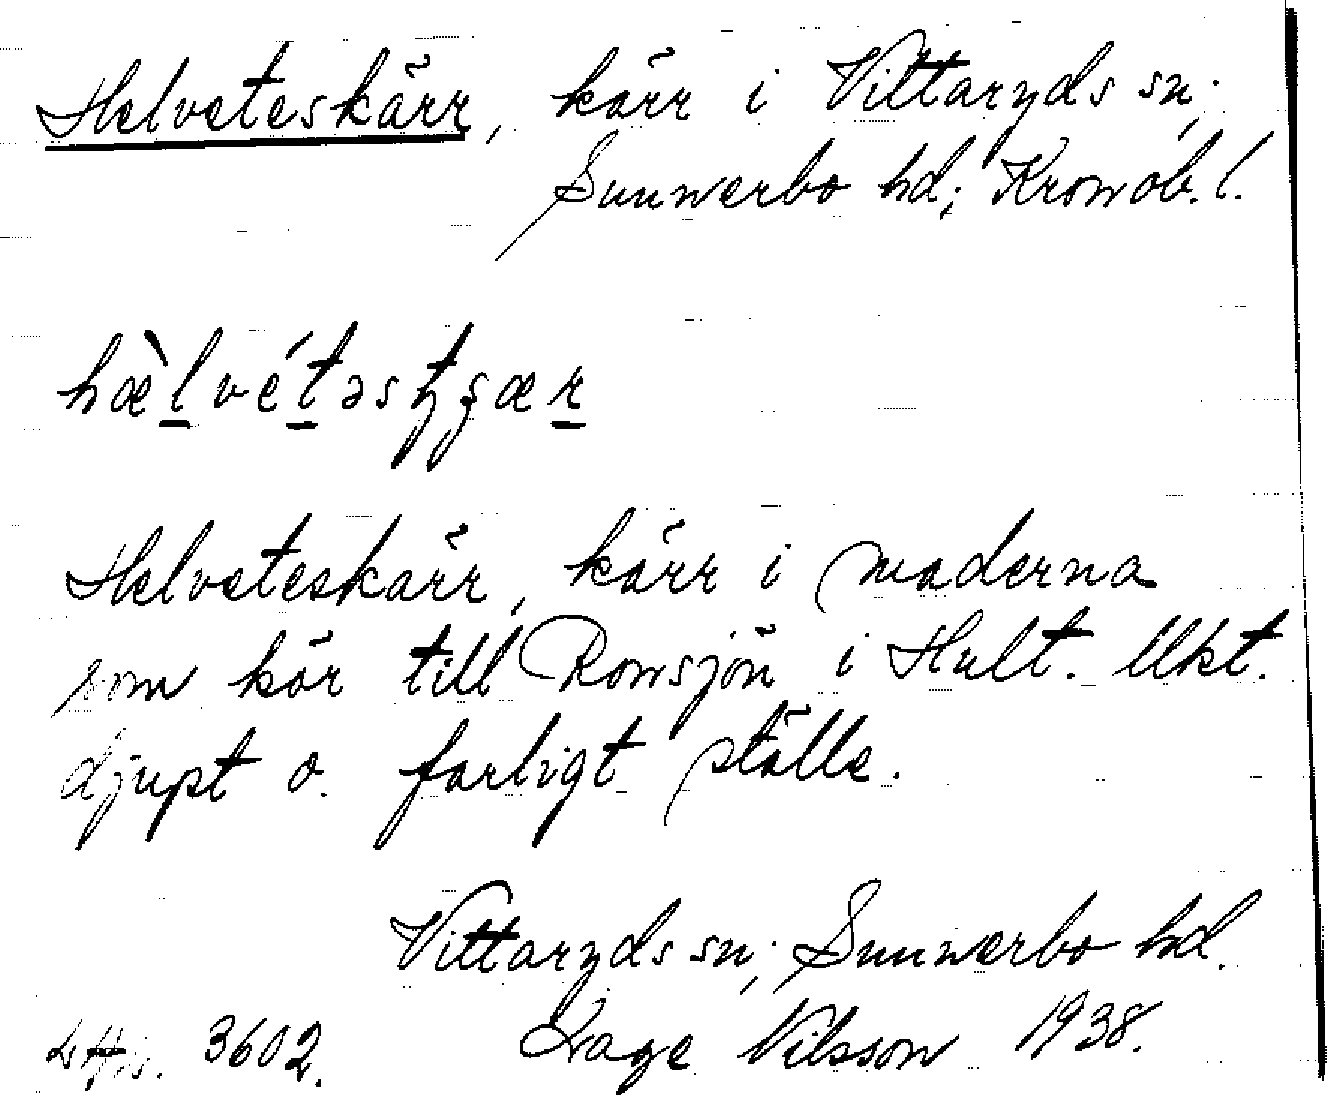 Helveteskärr, kärr i Vittaryds sn;
Sunnerbo hd; Kronob. l.
hælvétəstʂær
Helveteskärr, kärr i maderna
som hör till Ronsjön i Hult. Ukt.
djupt o. farligt ställe.
Vittaryds sn; Sunnerbo hd.
3602. Svage Nilsson 1938.